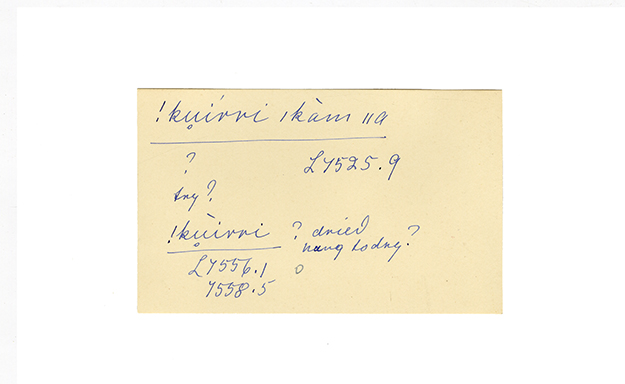 !kụirri ıkàm ııa
? L7525.9
try?
!kụirri ? dried
hung to dry?
L7556.1
7558.5